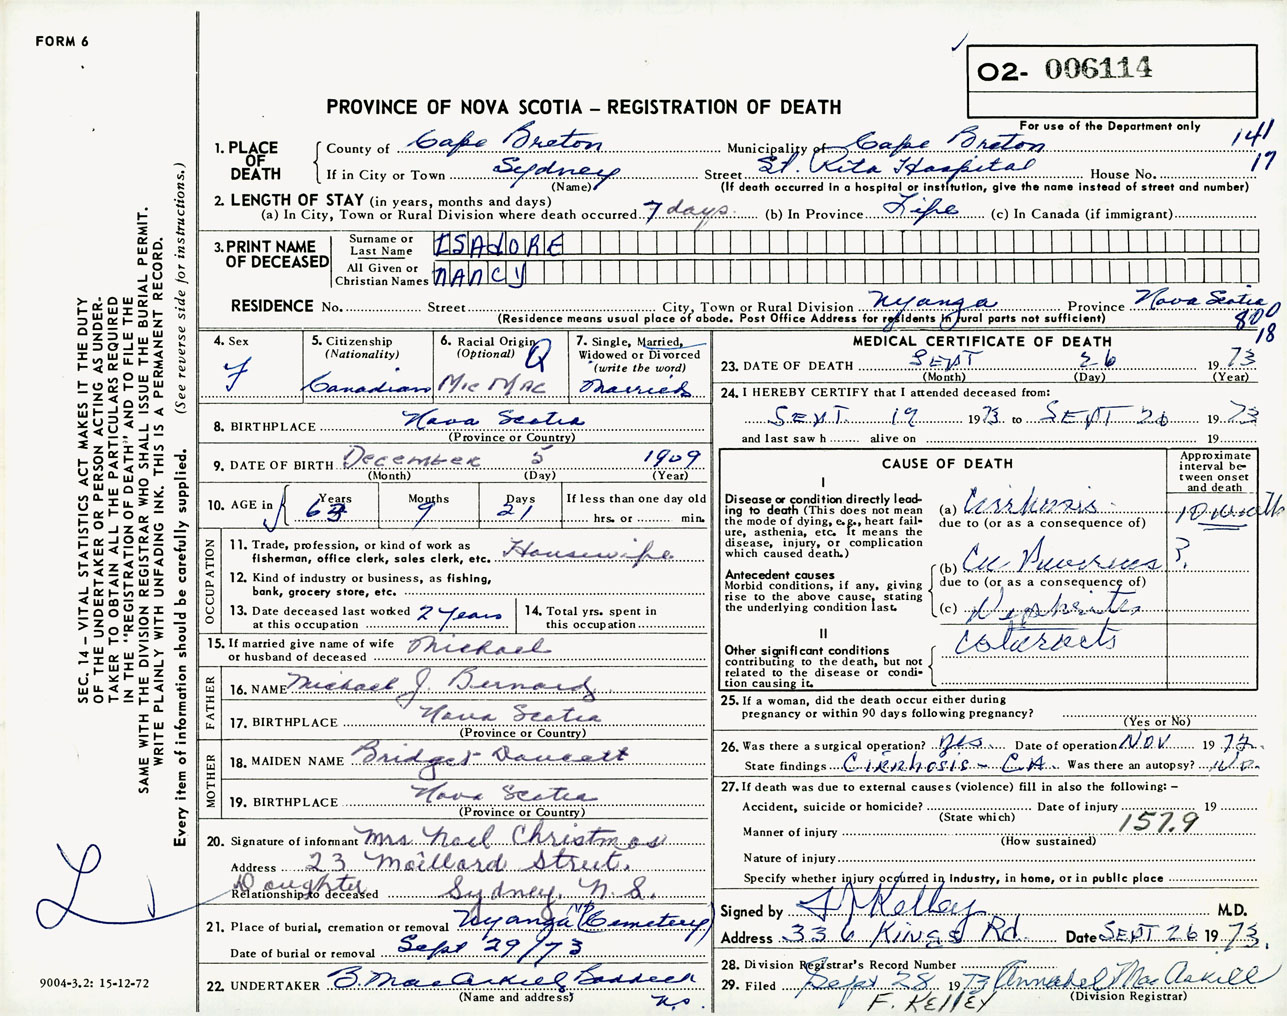 FORM 6
O2- 006114
PROVINCE OF NOVA SCOTIA – REGISTRATION OF DEATH
For use of the Department only
141
17
1. PLACE OF DEATH
County of Cape Breton Municipality of Cape Breton
If in City or Town Sydney Street St. Rita Hospital House No.
(Name) (If death occurred in a hospital or institution, give the name instead of street and number)
2. LENGTH OF STAY (in years, months and days)
(a) In City, Town or Rural Division where death occurred 7 days (b) In Province Life (c) In Canada (if immigrant)
3. PRINT NAME OF DECEASED
Surname or Last Name ISADORE
All Given or Christian Names NANCY
RESIDENCE No. Street City, Town or Rural Division Nyanga Province Nova Scotia
(Residence means usual place of abode. Post Office Address for residents in rural parts not sufficient)
800
18
4. Sex F
5. Citizenship (Nationality) Canadian
6. Racial Origin (Optional) Mic Mac
7. Single, Married, Widowed or Divorced (write the word) Married
8. BIRTHPLACE Nova Scotia
(Province or Country)
9. DATE OF BIRTH December 5 1909
(Month) (Day) (Year)
10. AGE in Years 63 Months 9 Days 21 If less than one day old
hrs. or min.
OCCUPATION
11. Trade, profession, or kind of work as fisherman, office clerk, sales clerk, etc. Housewife
12. Kind of industry or business, as fishing, bank, grocery store, etc.
13. Date deceased last worked at this occupation 2 years
14. Total yrs. spent in this occupation
15. If married give name of wife or husband of deceased Michael
FATHER
16. NAME Michael J. Bernard
17. BIRTHPLACE Nova Scotia
(Province or Country)
MOTHER
18. MAIDEN NAME Bridget Doucett
19. BIRTHPLACE Nova Scotia
(Province or Country)
20. Signature of informant Mrs Noel Christmas
Address 23 Maillard Street.
Relationship to deceased Daughter Sydney, N.S.
21. Place of burial, cremation or removal Nyanga (Cemetery)
Date of burial or removal Sept 29/73
22. UNDERTAKER B. MacAskill Baddeck
(Name and address) N.S.
MEDICAL CERTIFICATE OF DEATH
23. DATE OF DEATH SEPT 26 1973
(Month) (Day) (Year)
24. I HEREBY CERTIFY that I attended deceased from:
SEPT. 19 1973 to SEPT 26 1973
and last saw h alive on 19
CAUSE OF DEATH
Approximate interval between onset and death
I
Disease or condition directly leading to death (This does not mean the mode of dying, e.g., heart failure, asthenia, etc. It means the disease, injury, or complication which caused death.)
(a) Cirrhosis
due to (or as a consequence of)
10 month
Antecedent causes
Morbid conditions, if any, giving rise to the above cause, stating the underlying condition last.
(b) Ca Pancreas ?
due to (or as a consequence of)
(c) Nephritis
II
Other significant conditions contributing to the death, but not related to the disease or condition causing it.
Cataracts
25. If a woman, did the death occur either during pregnancy or within 90 days following pregnancy?
(Yes or No)
26. Was there a surgical operation? yes Date of operation NOV 1972
State findings CIRRHOSIS - CA Was there an autopsy? No
27. If death was due to external causes (violence) fill in also the following: –
Accident, suicide or homicide? Date of injury 19
(State which)
157.9
Manner of injury
(How sustained)
Nature of injury
Specify whether injury occurred in Industry, in home, or in public place
Signed by F J Kelley M.D.
Address 336 KINGS Rd. Date SEPT 26 1973.
28. Division Registrar's Record Number
29. Filed Sept 28 1973 Annabel MacAskill
(Division Registrar)
F. KELLEY
SEC. 14 – VITAL STATISTICS ACT MAKES IT THE DUTY
OF THE UNDERTAKER OR PERSON ACTING AS UNDER-
TAKER TO OBTAIN ALL THE PARTICULARS REQUIRED
IN THE "REGISTRATION OF DEATH" AND TO FILE THE
SAME WITH THE DIVISION REGISTRAR WHO SHALL ISSUE THE BURIAL PERMIT.
WRITE PLAINLY WITH UNFADING INK. THIS IS A PERMANENT RECORD.
Every item of information should be carefully supplied. (See reverse side for instructions.)
9004-3.2: 15-12-72